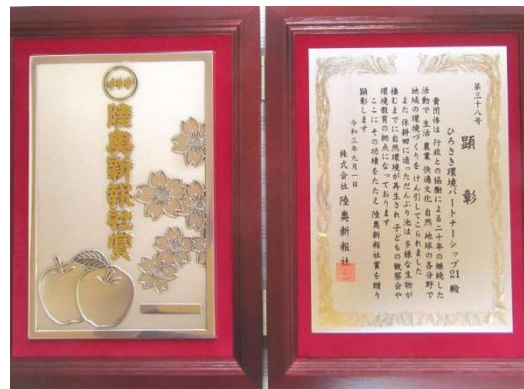 陸奥新報社賞
第三十八号
顕彰
ひろさき環境パートナーシップ21 殿
貴団体は 行政との協働による二十年の継続した
活動で 生活 農業 快適文化 自然 地球の各分野で
地域の環境づくりを けん引してこられました
また 休耕田に造っただんぶり池は 多様な生物が
棲むまでに自然環境が再生され 子どもの観察会や
環境教育の拠点になっております
ここに その功績をたたえ 陸奥新報社賞を贈り
顕彰します
令和三年九月一日
株式会社 陸奥新報社